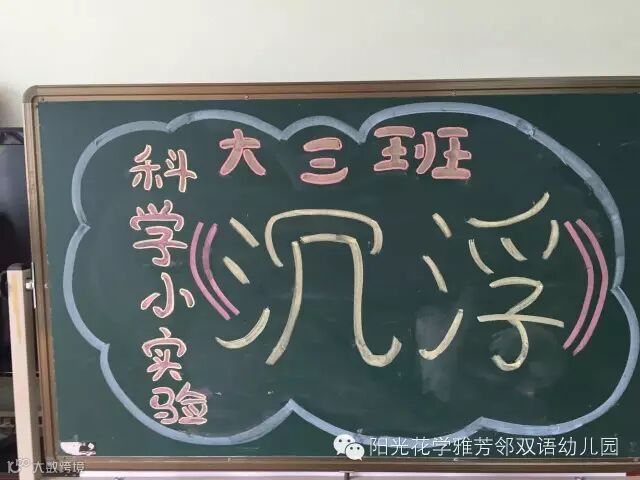 大三班
科学小实验
沉浮
阳光花学雅芳邻双语幼儿园
大数跨境